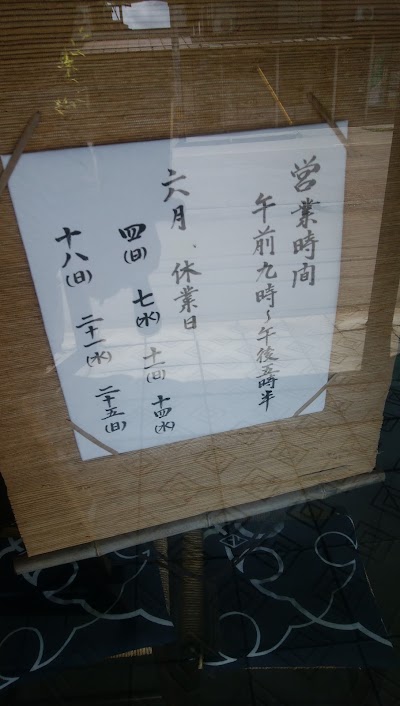 営業時間
午前九時～午後五時半
六月、休業日
四(日) 七(水) 十一(日) 十四(水)
十八(日) 二十一(水) 二十五(日)